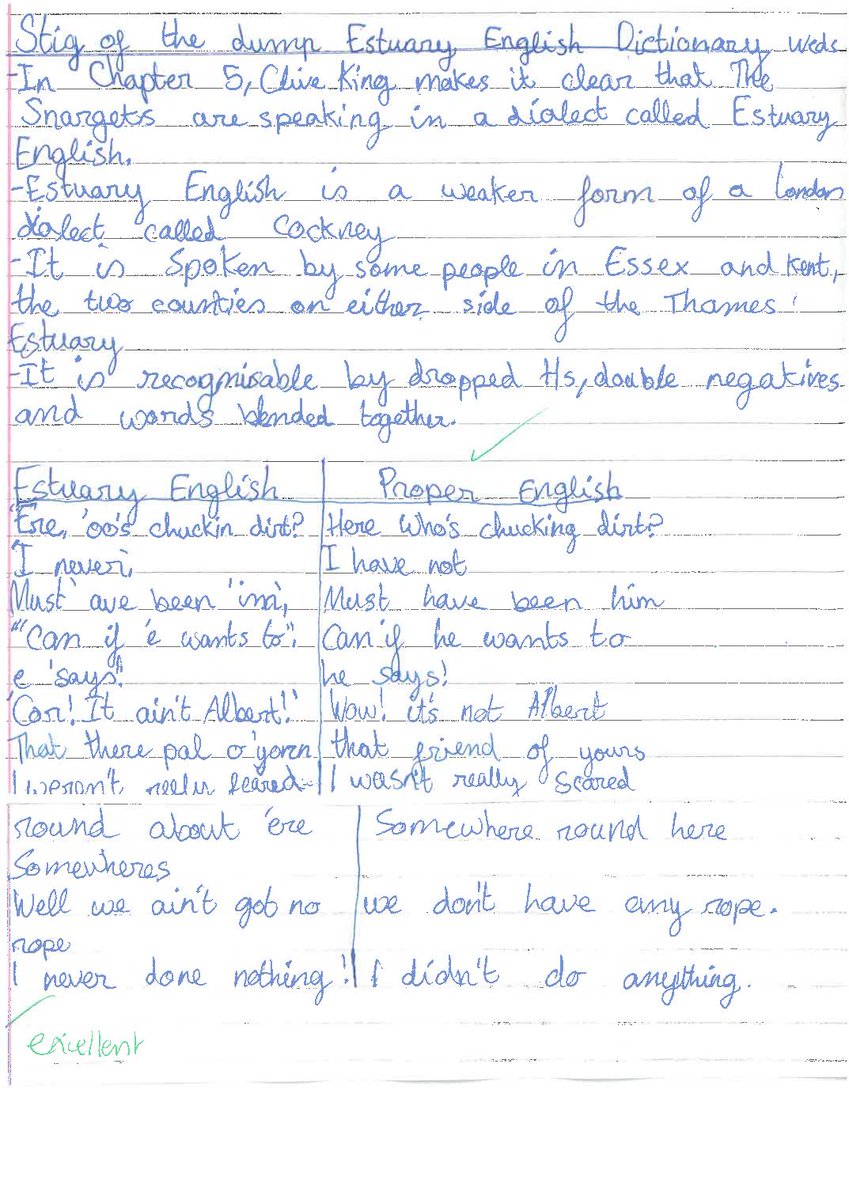 Stig of the dump Estuary English Dictionary Weds
-In Chapter 5, Clive King makes it clear that The
Snargets are speaking in a dialect called Estuary
English.
-Estuary English is a weaker form of a London
dialect called Cockney
-It is Spoken by some people in Essex and Kent,
the two counties on either side of the Thames
Estuary
-It is recognisable by dropped Hs, double negatives
and words blended together.
Estuary English Proper English
'Ere, 'oo's chuckin dirt? Here Who's chucking dirt?
'I never', I have not
Must 'ave been 'im', Must have been him
"'Can if 'e wants to". Can if he wants to
e 'says!' he says!
'Cor! It ain't Albert!' Wow! it's not Albert
That there pal o'yorn that friend of yours
I weren't reely scared- I wasn't really Scared
round about 'ere Somewhere round here
Somewheres
Well we ain't got no we don't have any rope.
rope
I never done nothing! I didn't do anything.
excellent